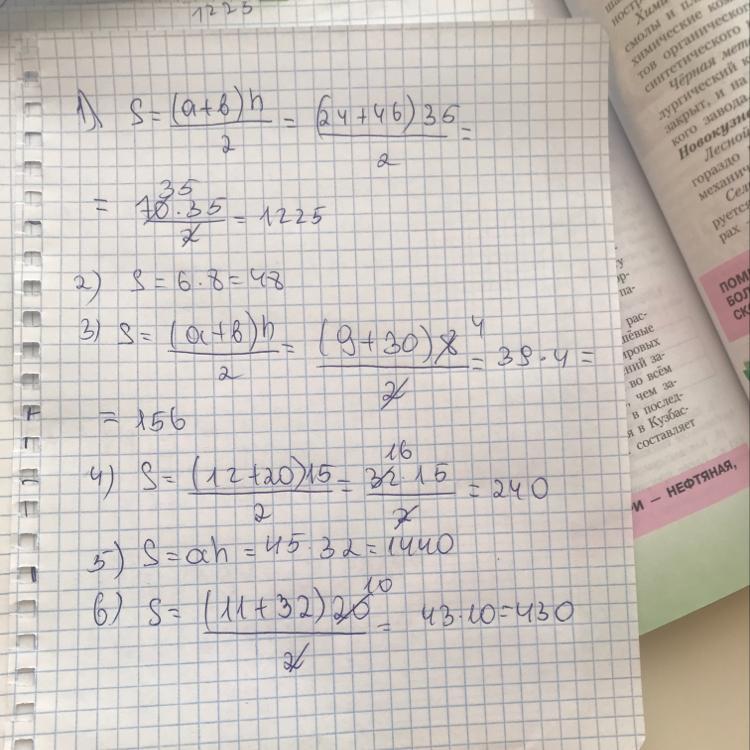 1225
1) S = (a+b)h / 2 = (24+46)35 / 2 =
= 70·35 / 2 = 1225
35
2) S = 6·8 = 48
3) S = (a+b)h / 2 = (9+30)8 / 2 = 39·4 =
4
= 156
4) S = (12+20)15 / 2 = 32·15 / 2 = 240
16
5) S = ah = 45·32 = 1440
6) S = (11+32)20 / 2 = 43·10 = 430
10
смолы и
химические
тов органическо
синтетического
Чёрная мета
лургический к
закрыт, и на
кого завода
Новокузне
Лесно
гораздо
механич
Сел
руется
рах
ПОМ
БОЛ
СК
рас-
шёвые
ировых
ний за-
во всём
, чем за-
в послед-
я в Кузбас-
составляет
РИ — НЕФТЯНАЯ,